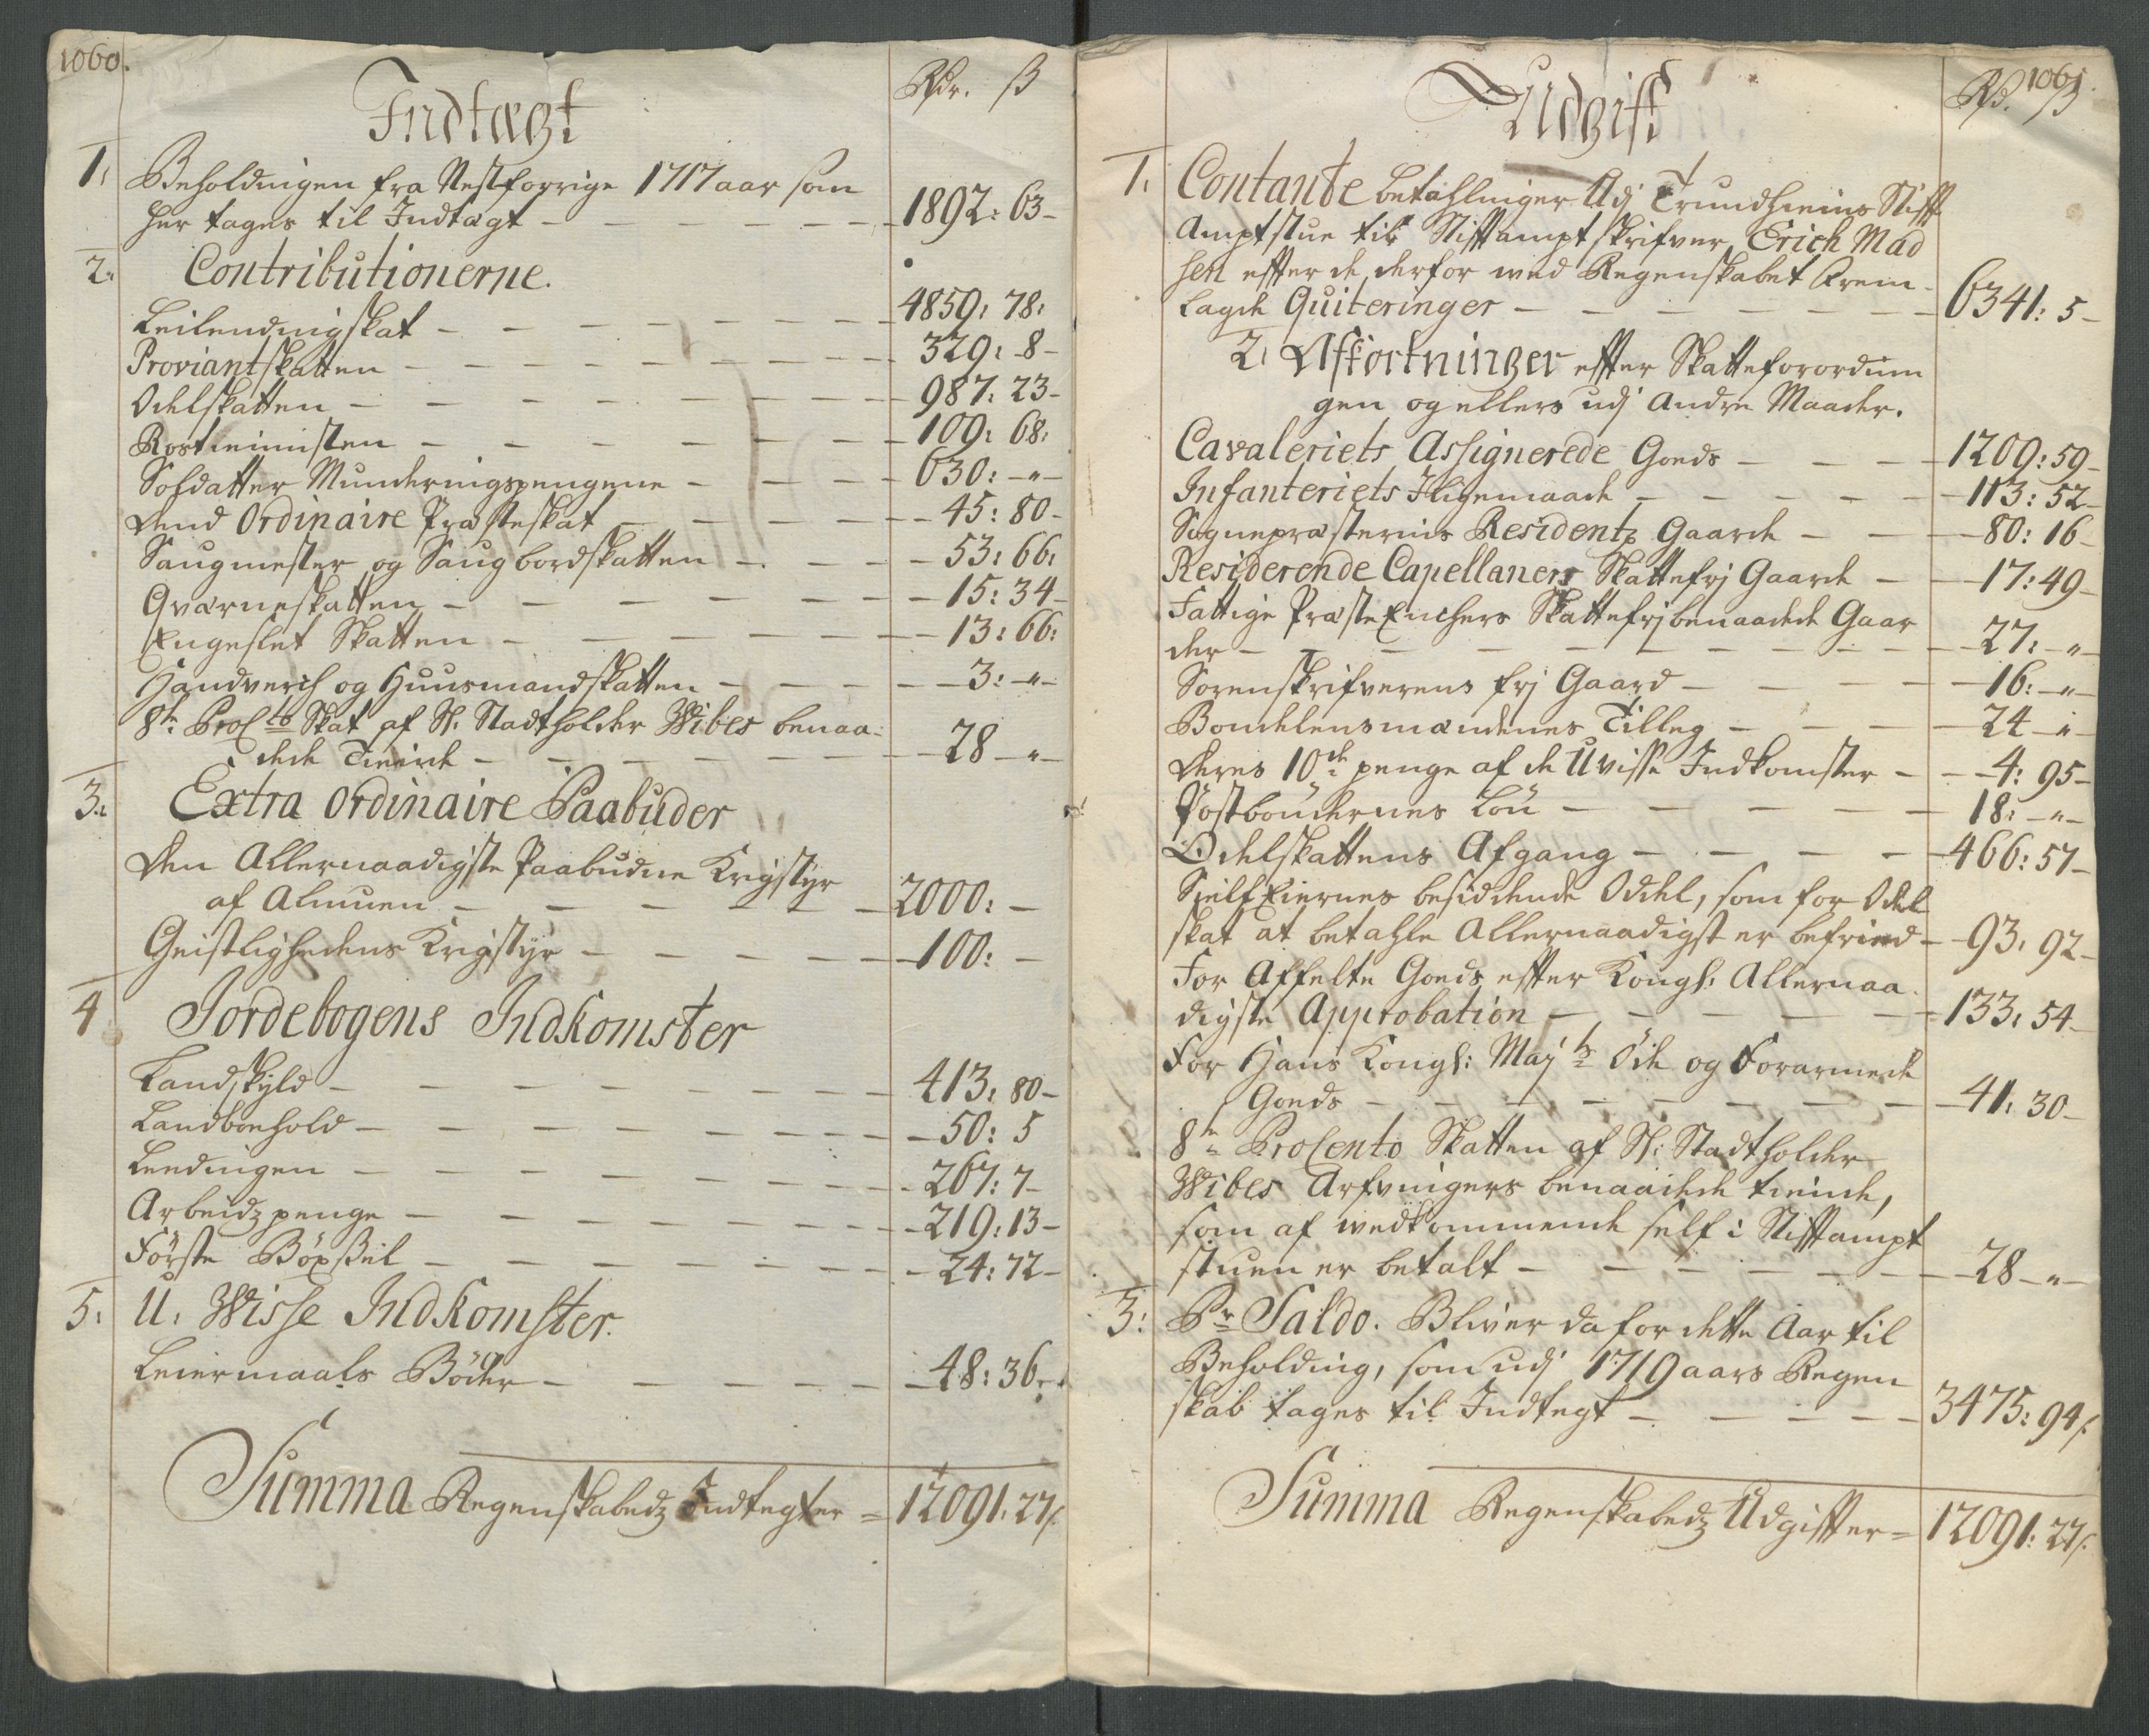 1060.
Rdr. ß
Indtægt
1. Beholdningen fra Nestforrige 1717 aar som
her tages til Indtægt – 1892: 63
2. Contributionerne.
Leilendingskat – 4859: 78:
Proviantskatten – 329: 8
Odelskatten – 987: 23
Rostieniisten – 109: 68:
Soldatter Munderingspengene – 630: "
Dend Ordinaire Præsteskat – 45: 80
Saugmester og Saugbordskatten – 53: 66:
Qværneskatten – 15: 34
Engeslet Skatten – 13: 66:
Handverch og Huusmandskatten – 3: "
8te ProCto Skat af Sl: Stadtholder Wibes benaa-
dede Tiende – 28 "
3. Extra Ordinaire Paabuder
Den Allernaadigste Paabudne Krigstyr
af Almuen – 2000: –
Geistlighedens Krigstyr – 100: –
4 Jordebogens Indkomster
Landskyld – 413: 80
Landboehold – 50: 5
Leedingen – 267: 7
Arbeidzpenge – 219: 13
Förste Böxßel – 24: 72
5: U: Wisse Indkomster.
Leiermaals Böder – 48: 36
Summa Regenskabedz Indtegter = 12091: 27ß.
1061.
Rd. ß
Udgift
1. Contante betahlninger Udj Trundhiems Stift
Amptstue til Stiftamptskrifver Erich Mad
sen effter de derfor med Regenskabet Frem-
lagde Quiteringer – 6341: 5
2. Afkortninger effter Skatteforordnin
gen og ellers udj Andre Maader.
Cavaleriets Assignerede Goeds – 1209: 59
Infanteriets Iligemaade – 113: 52
Sognepræsternis Residentz Gaarde – 80: 16
Residerende Capellaners Skattefrj Gaarde – 17: 49
Fattige Præste Enchers Skattefrj benaadede Gaar
der – 27: "
Sorenskrifverens frj Gaard – 16: "
Bondelensmændenes Tilleg – 24 "
Deres 10de penge af de Uvisse Indkomster – 4: 95
Postböndernes Lön – 18: "
Odelskattens Afgang – 466: 57
Sielf Eiernes besiddende Oddel, som for Odel
skat at betahle Allernaadigst er befried – 93: 92
For Affelte Goeds effter Kongl: Allernaa-
digste Approbation – 133: 54
For Hans Kongl: Mayts Öde og Forarmede
Goeds – 41: 30
8te ProCento Skatten af Sl: Stadtholder
Wibes Arfvingers benaadede tiende,
som af vedkommende self i Stiftampt
stuen er betalt – 28 "
3: Pr Saldo. Bliver da for dette Aar til
Beholding, som udj 1719 aars Regen
skab tages til Indtegt – 3475: 94ß.
Summa Regenskabedz Udgiffter = 12091: 27ß.